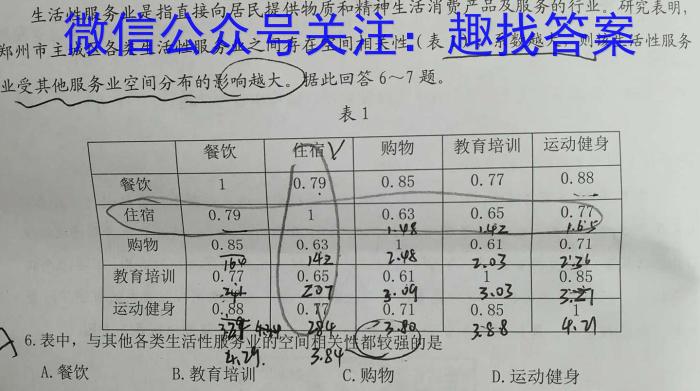 生活性服务业是指直接向居民提供物质和精神生活消费产品及服务的行业。研究表明,
郑州市主城区各类生活性服务业之间存在空间相关性(表
系数越大,则该生活性服务
微信公众号关注:趣找答案
业受其他服务业空间分布的影响越大。据此回答6~7题。
表1
餐饮 住宿 购物 教育培训 运动健身
餐饮 1 0.79 0.85 0.77 0.88
住宿 0.79 1 0.63 0.65 0.77
1.48 1.42 1.65
购物 0.85 0.63 1 0.61 0.71
1.64 1.42 2.48 2.03 2.36
教育培训 0.77 0.65 0.61 1 0.85
2.07 3.09 3.03 3.21
运动健身 0.88 0.77 0.71 0.85 1
2.84 3.80 3.88 4.21
6.表中,与其他各类生活性服务业的空间相关性都较强的是
4.29 3.84
A.餐饮 B.教育培训 C.购物 D.运动健身